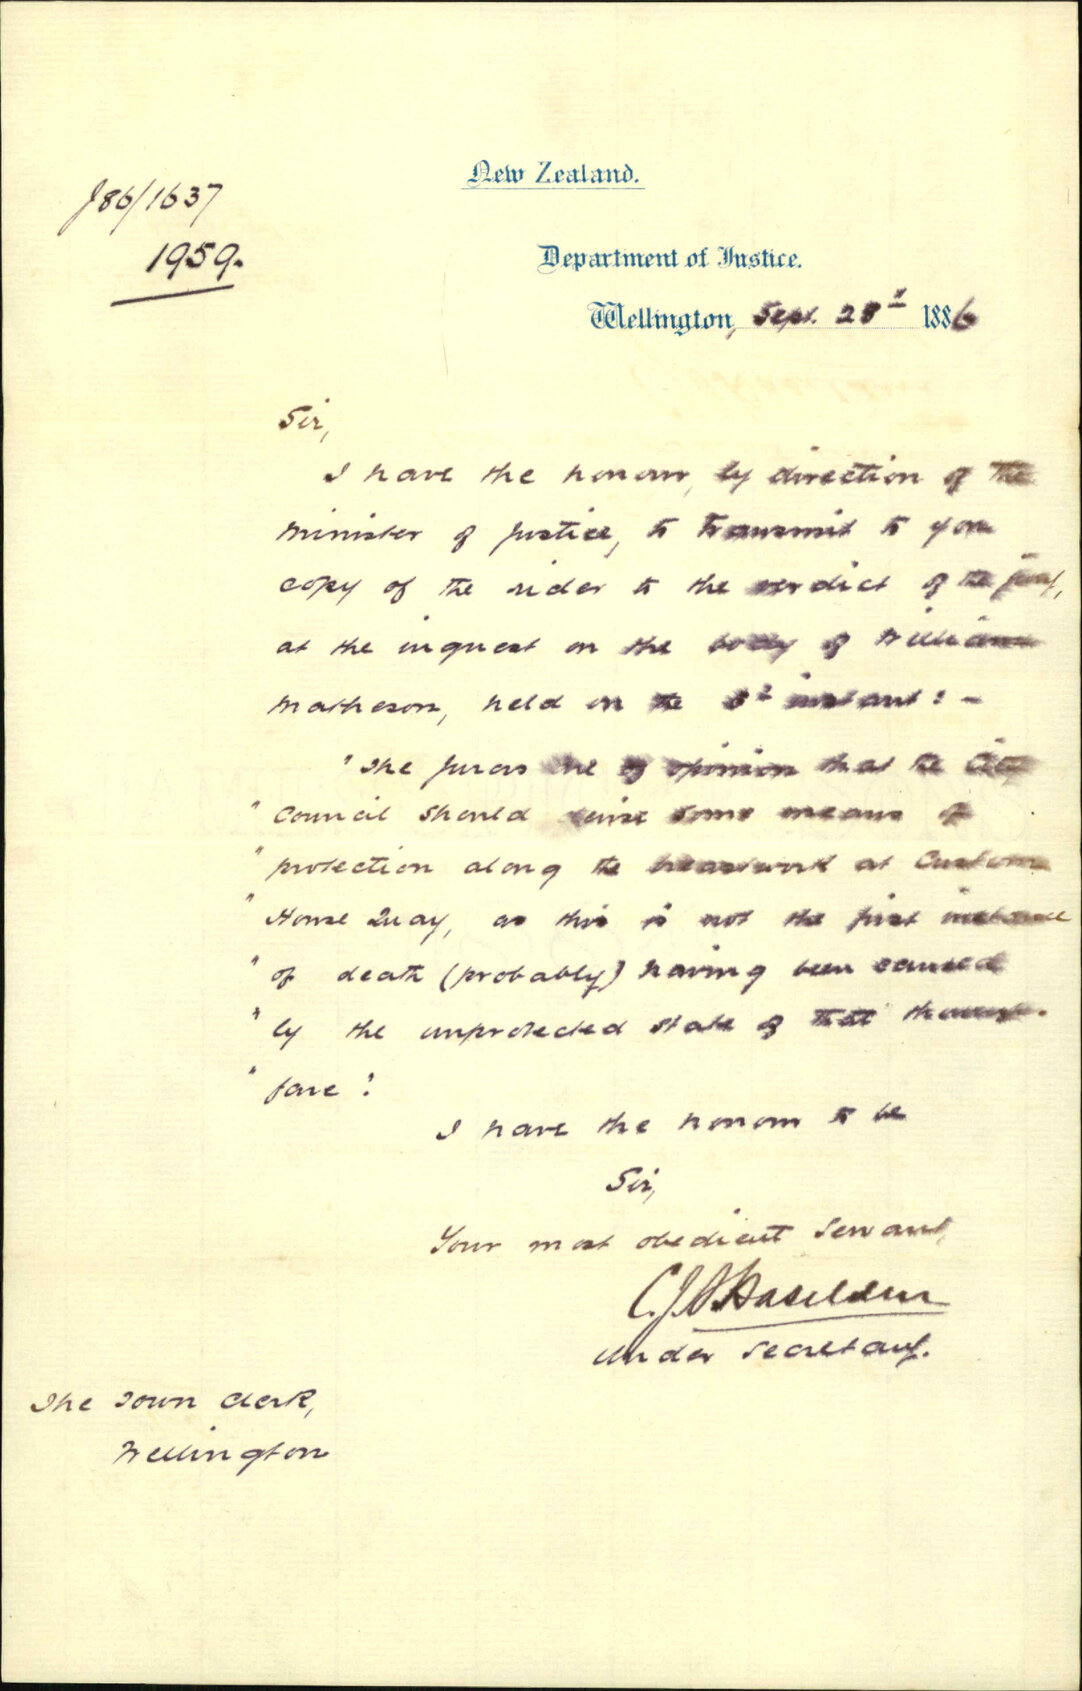 New Zealand.
J86/1637
1959.
Department of Justice.
Wellington, Sept. 28th 1886
Sir,
I have the honour, by direction of the
Minister of Justice, to transmit to you
copy of the rider to the verdict of the jury,
at the inquest on the body of William
Matheson, held on the instant: -
"The jurors are of opinion that the City
"Council should devise some means of
"protection along the breastwork at Custom
"House Quay, as this is not the first instance
"of death (probably) having been caused
"by the unprotected state of that thorough-
"fare".
I have the honour to be
Sir,
Your most obedient servant,
C.J.A. Haselden
Under Secretary.
The Town Clerk,
Wellington